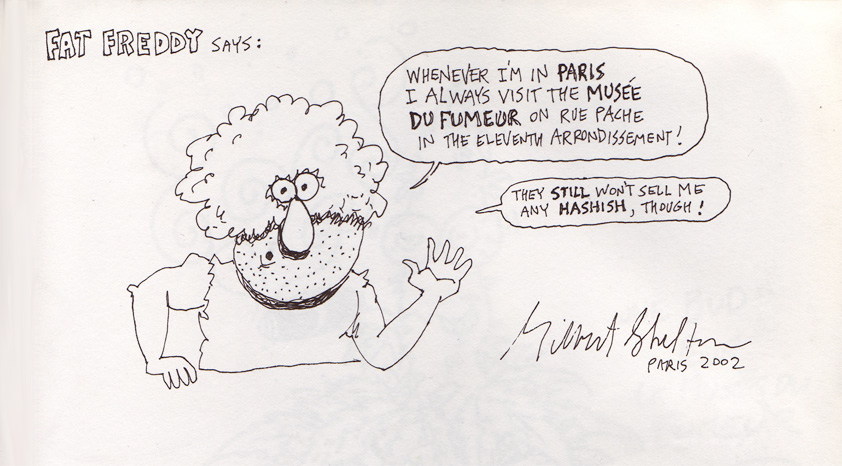 FAT FREDDY SAYS:
WHENEVER I'M IN PARIS
I ALWAYS VISIT THE MUSÉE
DU FUMEUR ON RUE PACHE
IN THE ELEVENTH ARRONDISSEMENT!
THEY STILL WON'T SELL ME
ANY HASHISH, THOUGH!
Gilbert Shelton
PARIS 2002